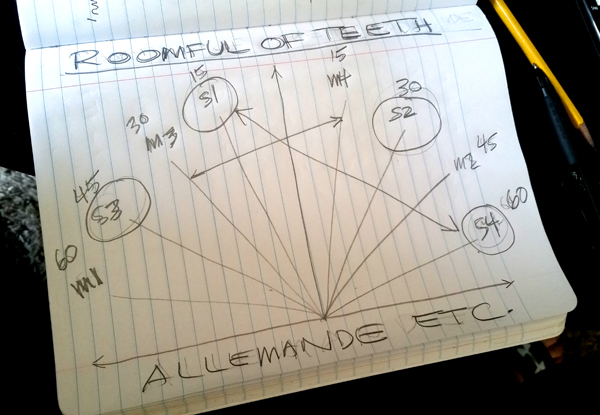 ROOMFUL OF TEETH
15
S1
15
M4
30
S2
30
M3
M2 45
45
S3
S4 60
60
M1
ALLEMANDE ETC.